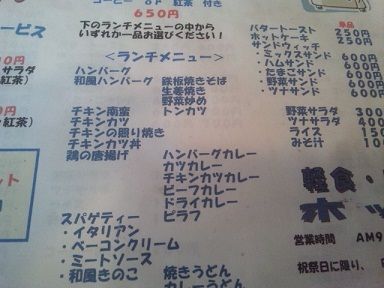 コーヒー or 紅茶 付き
650円
下のランチメニューの中から
いずれか一品お選びください！
<ランチメニュー>
ハンバーグ
和風ハンバーグ 鉄板焼きそば
生姜焼き
野菜炒め
チキン南蛮 トンカツ
チキンカツ
チキンの照り焼き
チキンカツ丼
鶏の唐揚げ ハンバーグカレー
カツカレー
チキンカツカレー
ビーフカレー
ドライカレー
スパゲティー ピラフ
・イタリアン
・ベーコンクリーム
・ミートソース
・和風きのこ 焼きうどん
カレーうどん
単品
バタートースト 250円
ホットケーキ 250円
サンドウィッチ
・ミックスサンド 600円
・ハムサンド
・たまごサンド
・野菜サンド
・ツナサンド
野菜サラダ
ツナサラダ
ライス
みそ汁
ービス
サラダ
紅茶)
紅茶)
ット
軽食・
営業時間 AM9
祝祭日に限り、